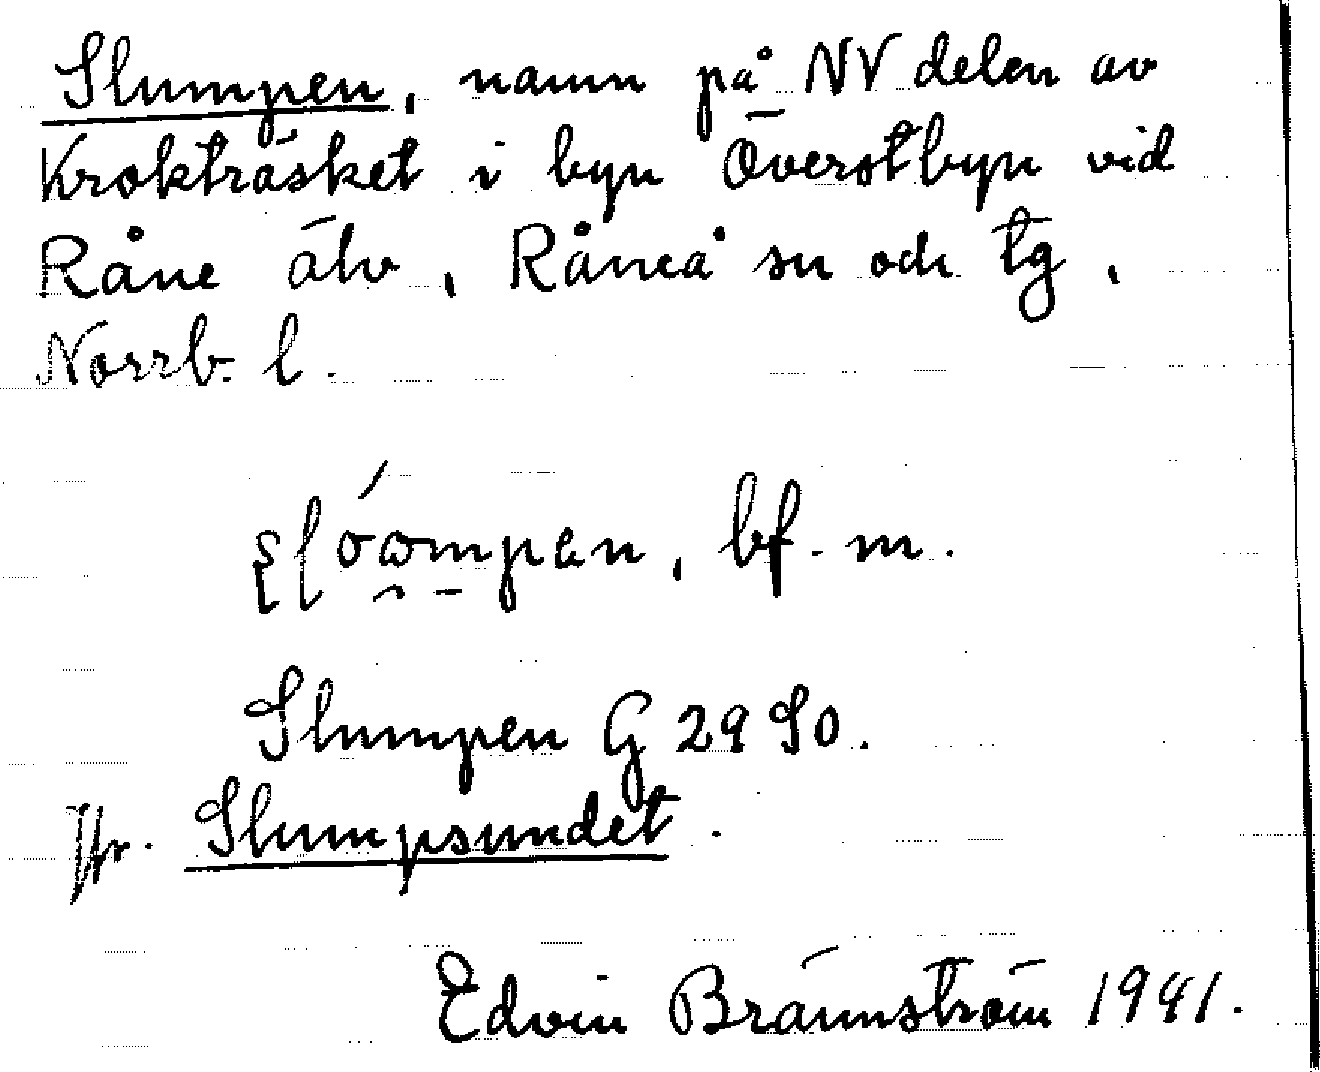 Slumpen, namn på NV delen av
Kroktråsket i byn Överstbyn vid
Råne älv, Råneå sn och tg,
Norrb. l.
bf. m.
Slumpen G 29 SO.
Jfr. Slumpsundet.
Edvin Brännström 1941.